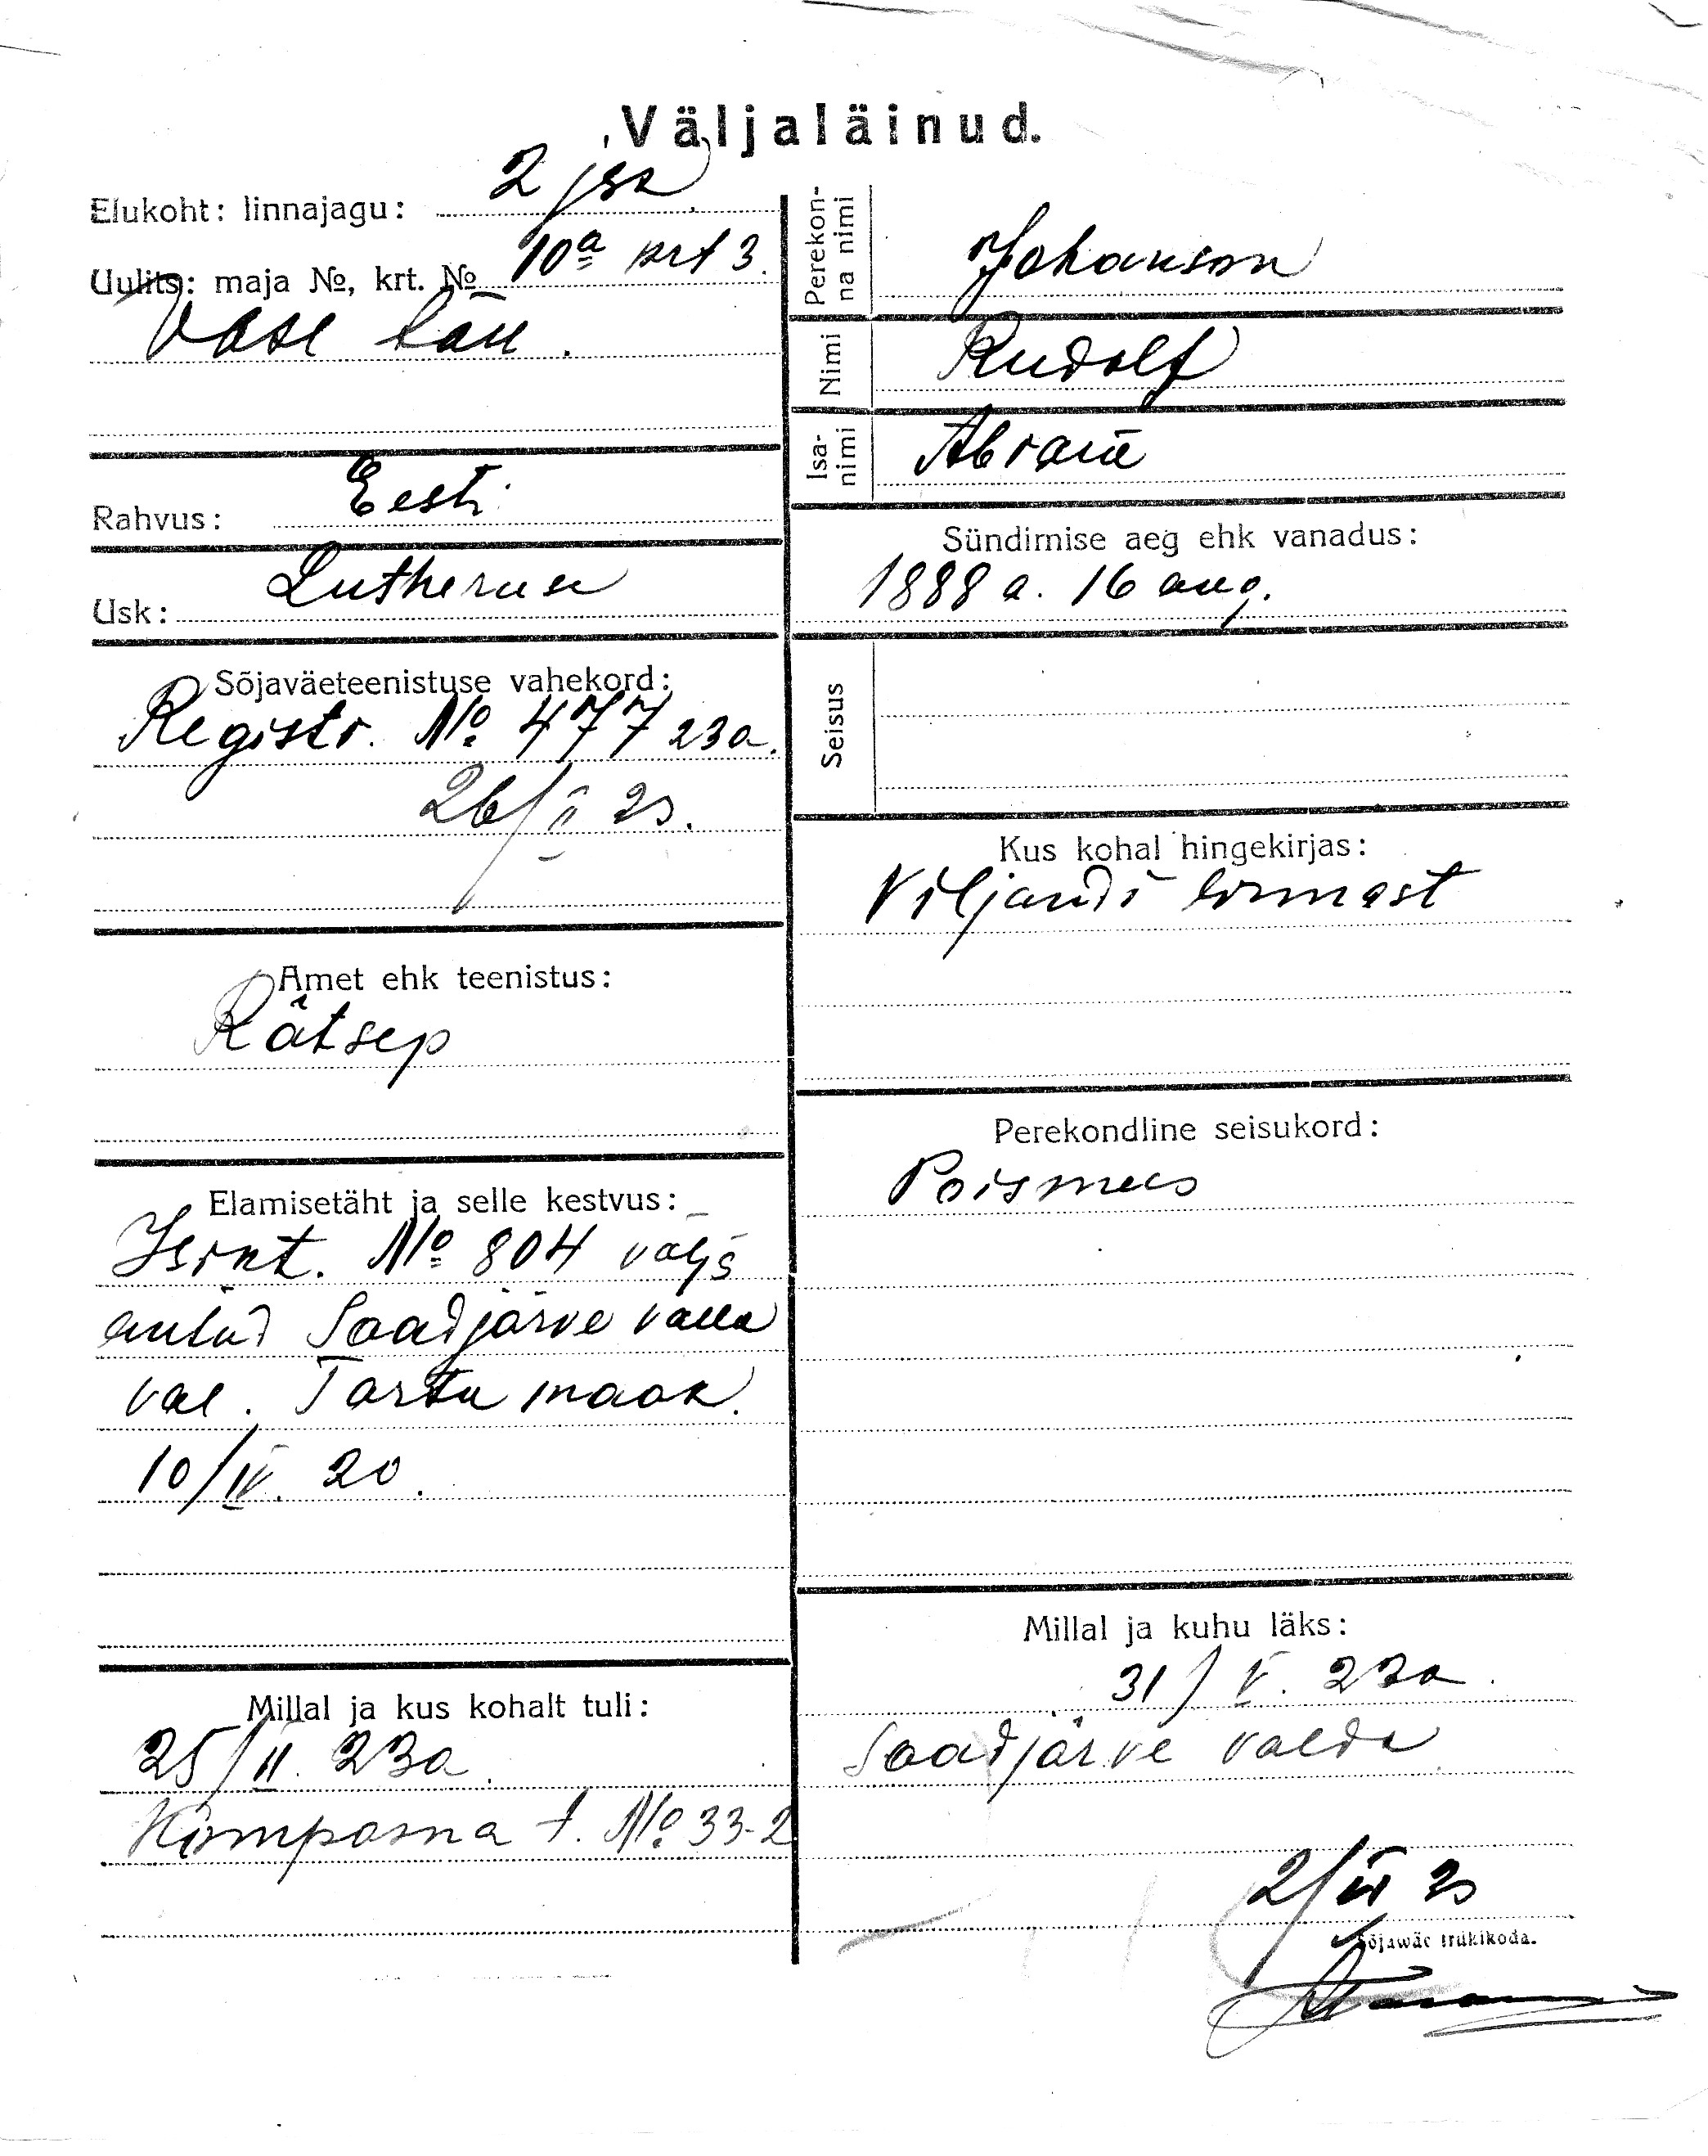 Väljaläinud.
Elukoht: linnajagu: 2 jsk.
Uulits: maja №, krt. № 10ª krt 3.
Vase tän.
Rahvus: Eesti
Usk: Lutheruse
Sõjaväeteenistuse vahekord:
Registr. № 477 23a.
26/II 23.
Amet ehk teenistus:
Rätsep
Elamisetäht ja selle kestvus:
Isikt. № 804 välja
antud Saadjärve valla
val. Tartu maak.
10/IV. 20.
Millal ja kus kohalt tuli:
25/II. 23a.
t. № 33-2
Perekon-
na nimi
Johanson
Nimi Rudolf
Isa-
nimi
Sündimise aeg ehk vanadus:
1888 a. 16 aug.
Seisus
Kus kohal hingekirjas:
Viljandi linnast
Perekondline seisukord:
Poismees
Millal ja kuhu läks:
31/V. 23a.
Saadjärve valda
2/VI 23
Sõjawäe trükikoda.